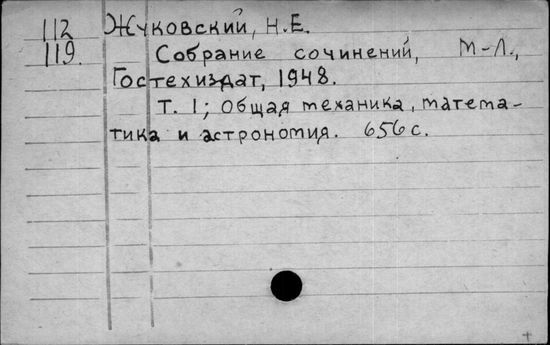 112 Жуковский, Н.Е.
119. Собрание сочинений, М-Л.,
Гостехиздат, 1948.
Т. 1; Общая механика, матема-
тика и астрономия. 656 с.